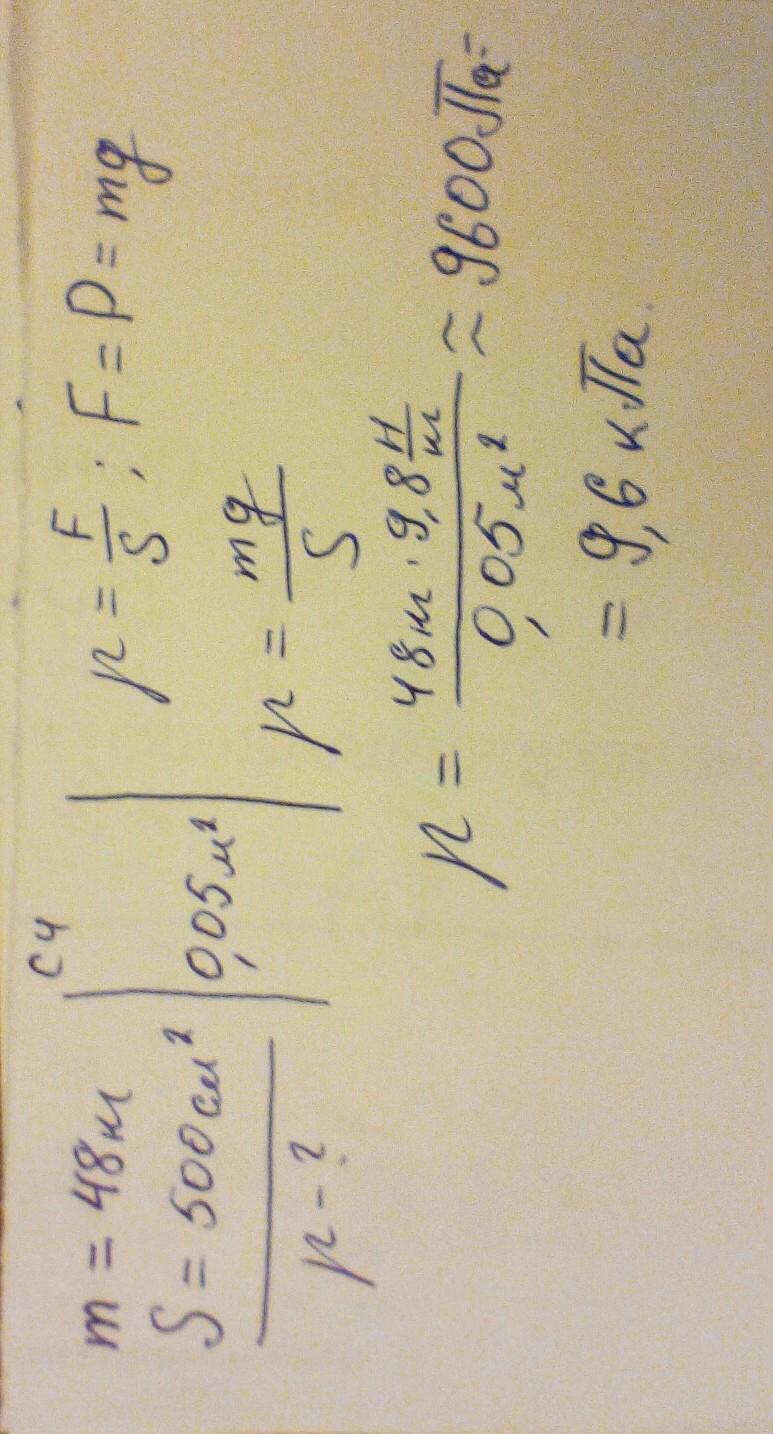 СИ
m = 48 кг
S = 500 см² | 0,05 м²
p - ?
p = F/S ; F = P = mg
p = mg/S
p = 48 кг · 9,8 Н/кг / 0,05 м² ≈ 9600 Па =
= 9,6 кПа.